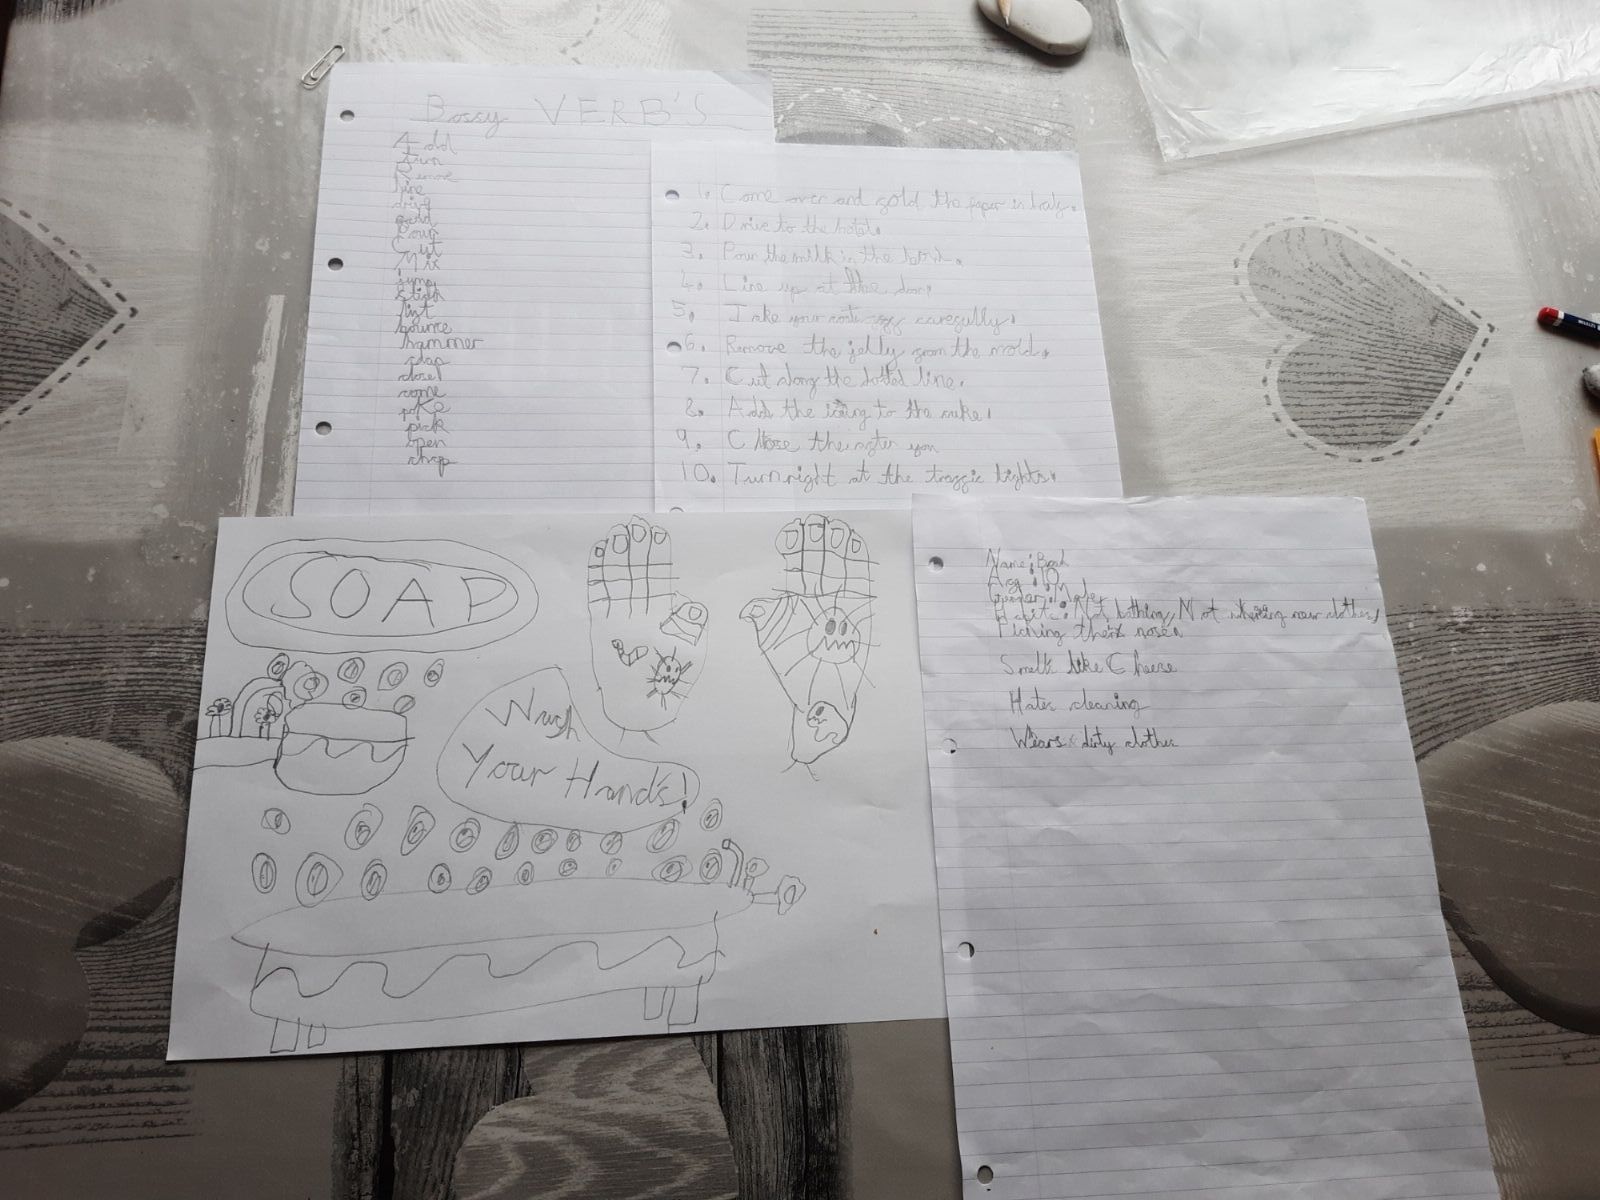 Bossy VERB'S
Add
Turn
Remove
line
drive
add
Pour
Cut
Mix
jump
stick
bounce
hammer
clap
close
come
poke
pick
open
chop
1. Come over and gold the paper in
2. Drive to the hotel.
3. Pour the milk in the bowl.
4. Line up at the door
5. Take your caregully.
6. Remove the jelly grom the mold.
7. Cut along the dotted line.
8. Add the icing to the
9. the
10. Turn right at the traggic lights.
SOAP
Wash
Your Hand's!
Name:
Age:
Gender: Male
Habits: Not bathing, Not new clothes,
Picking their nose.
Smells like Cheese
Hates cleaning
Wears dirty clothes